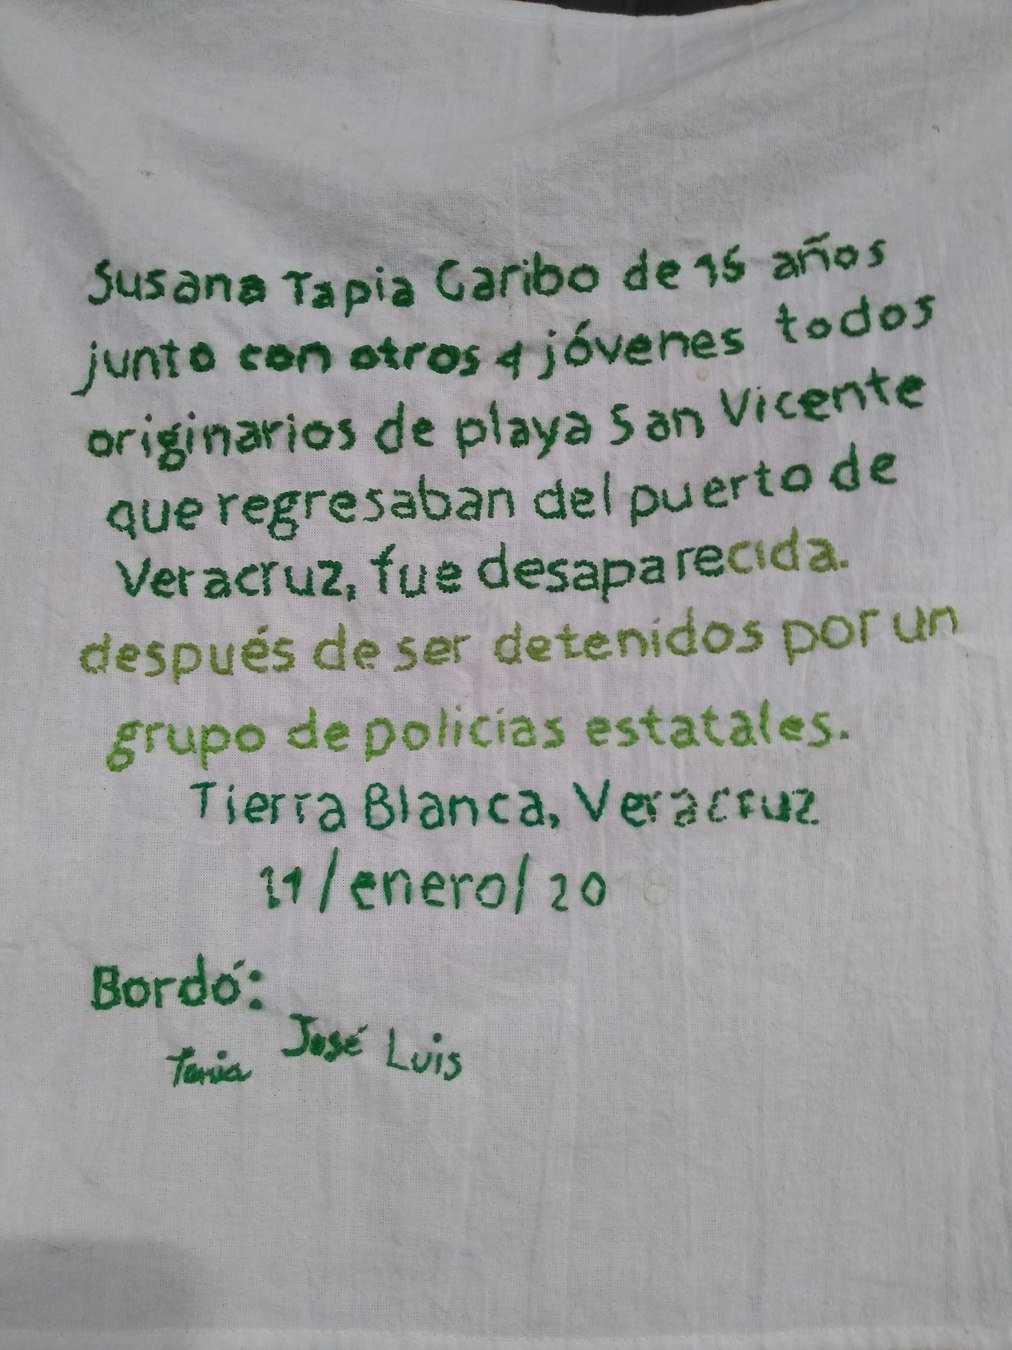 Susana Tapia Garibo de 16 años
junto con otros 4 jóvenes todos
originarios de playa San Vicente
que regresaban del puerto de
Veracruz, fue desaparecida.
después de ser detenidos por un
grupo de policías estatales.
Tierra Blanca, Veracruz
11/enero/2016
Bordó:
Tania José Luis